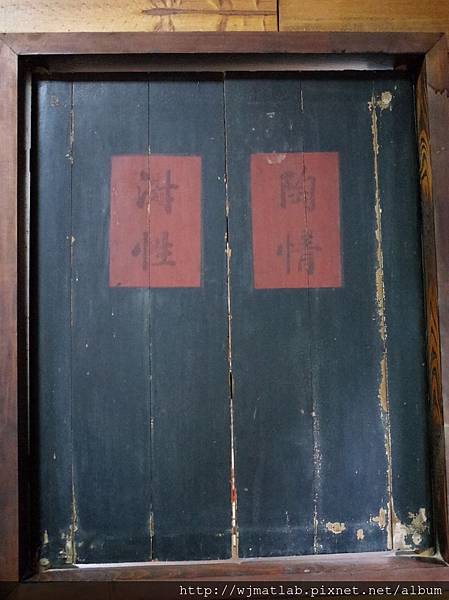 陶情
淑性
http://wjmatlab.pixnet.net/album